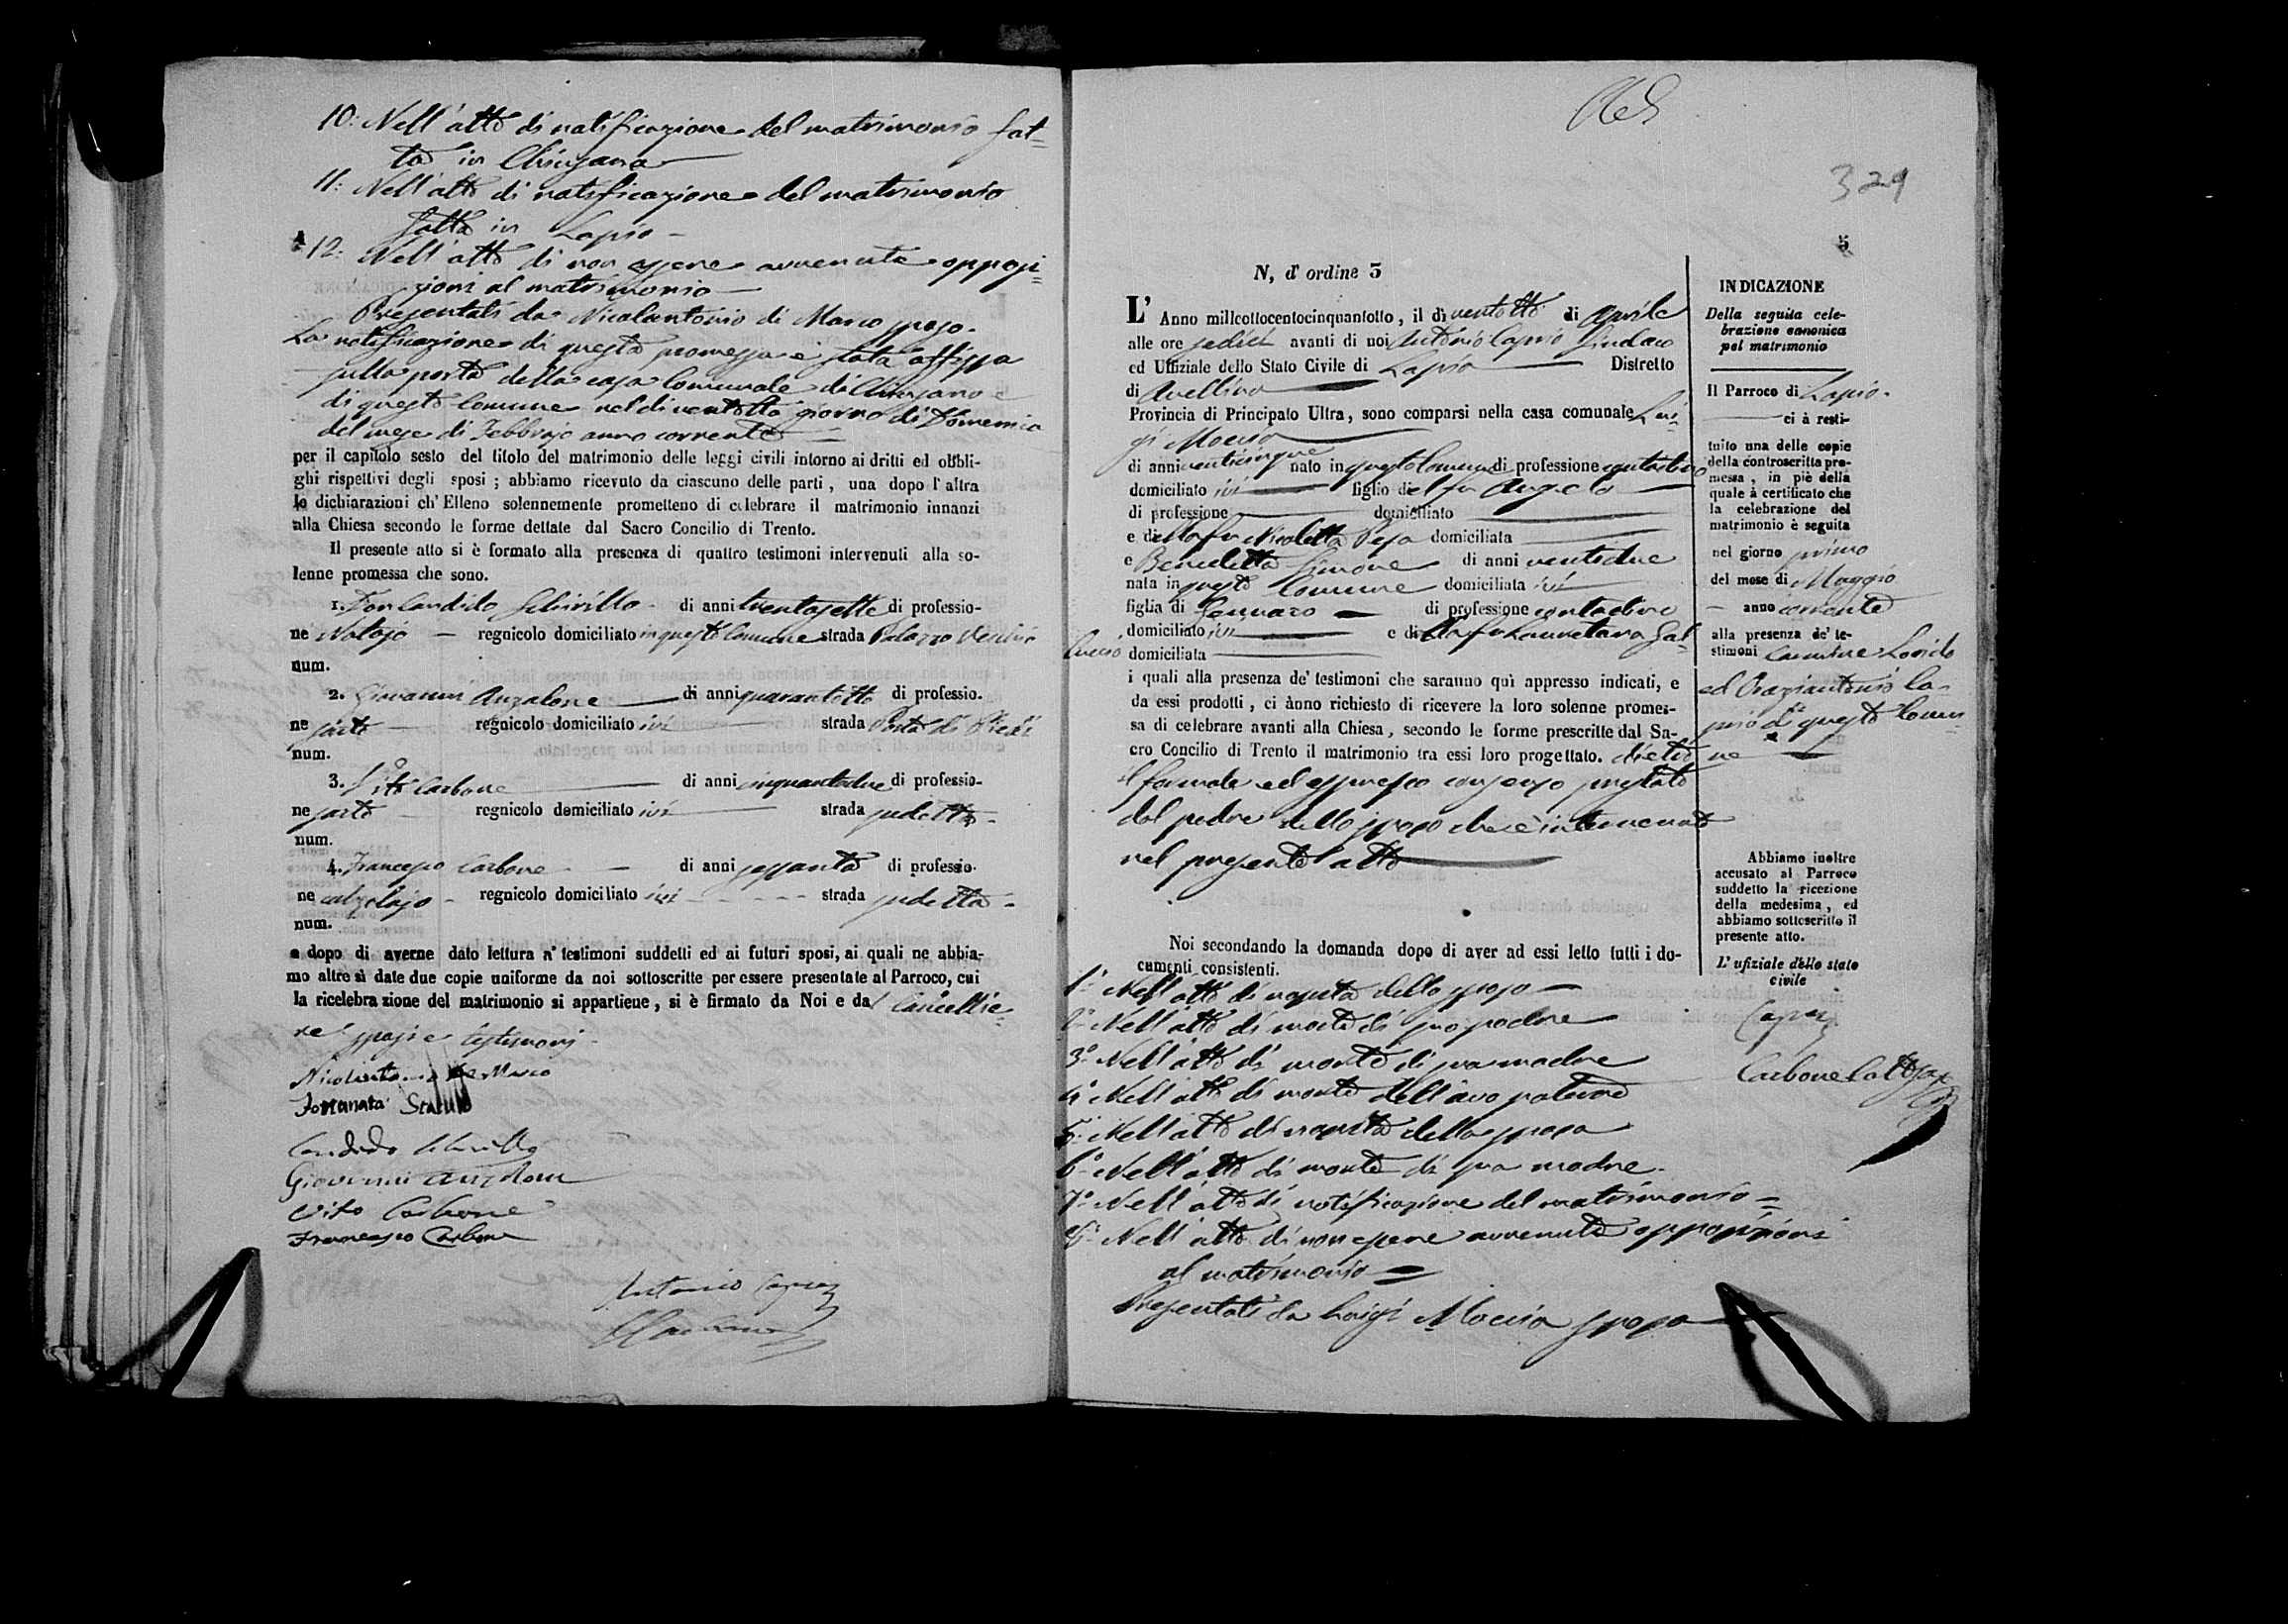 10: Nell'atto di notificazione del matrimonio fat=
to in Chiusano
11: Nell'atto di notificazione del matrimonio
fatto in Lapio
12: Nell'atto di non essere avvenute opposi=
zioni al matrimonio
Presentati da Nicolantonio di Marco sposo.
La notificazione di questa promessa è stata affissa
sulla porta della casa Comunale di Chiusano e
di questo Comune nel dì ventotto giorno di Domenica
del mese di Febbrajo anno corrente
per il capitolo sesto del titolo del matrimonio delle leggi civili intorno ai dritti ed obbli-
ghi rispettivi degli sposi ; abbiamo ricevuto da ciascuno delle parti, una dopo l'altra
le dichiarazioni ch'Elleno solennemente promettono di celebrare il matrimonio innanzi
alla Chiesa secondo le forme dettate dal Sacro Concilio di Trento.
Il presente atto si è formato alla presenza di quattro testimoni intervenuti alla so-
lenne promessa che sono.
1. Don Candido Schirillo di anni trentasette di professio-
ne Notajo regnicolo domiciliato in questo Comune strada Palazzo Vecchio
num.
2. Giovanni Anzalone di anni quarantotto di professio.
ne sarto regnicolo domiciliato ivi strada Porta di
num.
3. Vito Carbone di anni cinquantadue di professio-
ne sarto regnicolo domiciliato ivi strada sudetta
num.
4. Francesco Carbone di anni sessanta di professio.
ne calzolajo regnicolo domiciliato ivi strada sudetta
num.
e dopo di averne dato lettura a' testimoni suddetti ed ai futuri sposi, ai quali ne abbia-
mo altre sì date due copie uniforme da noi sottoscritte per essere presentate al Parroco, cui
la ricelebrazione del matrimonio si appartiene, si è firmato da Noi e dal Cancellie=
re sposi e testimonj
Nicolantonio de Marco
Fortunata
Candido Schirillo
Giovanni Anzalone
Vito Carbone
Francesco Carbone
Antonio Caprio
329
5
N, d' ordine 5
L' Anno millottocentocinquantotto, il dì ventotto di Aprile
alle ore sedici avanti di noi Antonio Caprio Sindaco
ed Uffiziale dello Stato Civile di Lapio Distretto
di Avellino
Provincia di Principato Ultra, sono comparsi nella casa comunale Lui=
gi Moccia
di anni venticinque nato in questo Comune di professione contadino
domiciliato ivi figlio del fu Angelo
di professione domiciliato
e della fu Nicoletta Pesa domiciliata
e Benedetta Simone di anni ventidue
nata in questo Comune domiciliata ivi
figlia di Gennaro di professione contadino
domiciliato ivi e della fu Lauretana Gal=
luccio domiciliata
i quali alla presenza de' testimoni che saranno quì appresso indicati, e
da essi prodotti, ci ànno richiesto di ricevere la loro solenne promes-
sa di celebrare avanti alla Chiesa, secondo le forme prescritte dal Sa-
cro Concilio di Trento il matrimonio tra essi loro progettato. dietro
il formale ed espresso consenso prestato
dal padre della sposa che è intervenuto
nel presente atto
Noi secondando la domanda dopo di aver ad essi letto tutti i do-
cumenti consistenti.
1° Nell'atto di nascita dello sposo
2° Nell'atto di morte di suo padre
3° Nell'atto di morte di sua madre
4° Nell'atto di morte dell'avo paterno
5° Nell'atto di nascita della sposa
6° Nell'atto di morte di sua madre
7° Nell'atto di notificazione del matrimonio
8° Nell'atto di non essere avvenute opposizioni
al matrimonio
Presentati da Luigi Moccia sposo
INDICAZIONE
Della seguita cele-
brazione canonica
pel matrimonio
Il Parroco di Lapio
ci à resti-
tuito una delle copie
della controscritta pro-
messa, in piè della
quale à certificato che
la celebrazione del
matrimonio è seguita
nel giorno primo
del mese di Maggio
anno corrente
alla presenza de' te-
stimoni Carmine Lovido
ed Oraziantonio Ca=
prio di questo Comu=
ne
Abbiamo inoltre
accusato al Parroco
suddetto la ricezione
della medesima, ed
abbiamo sottoscritto il
presente atto.
L' ufiziale dello stato
civile
Caprio
Carbone